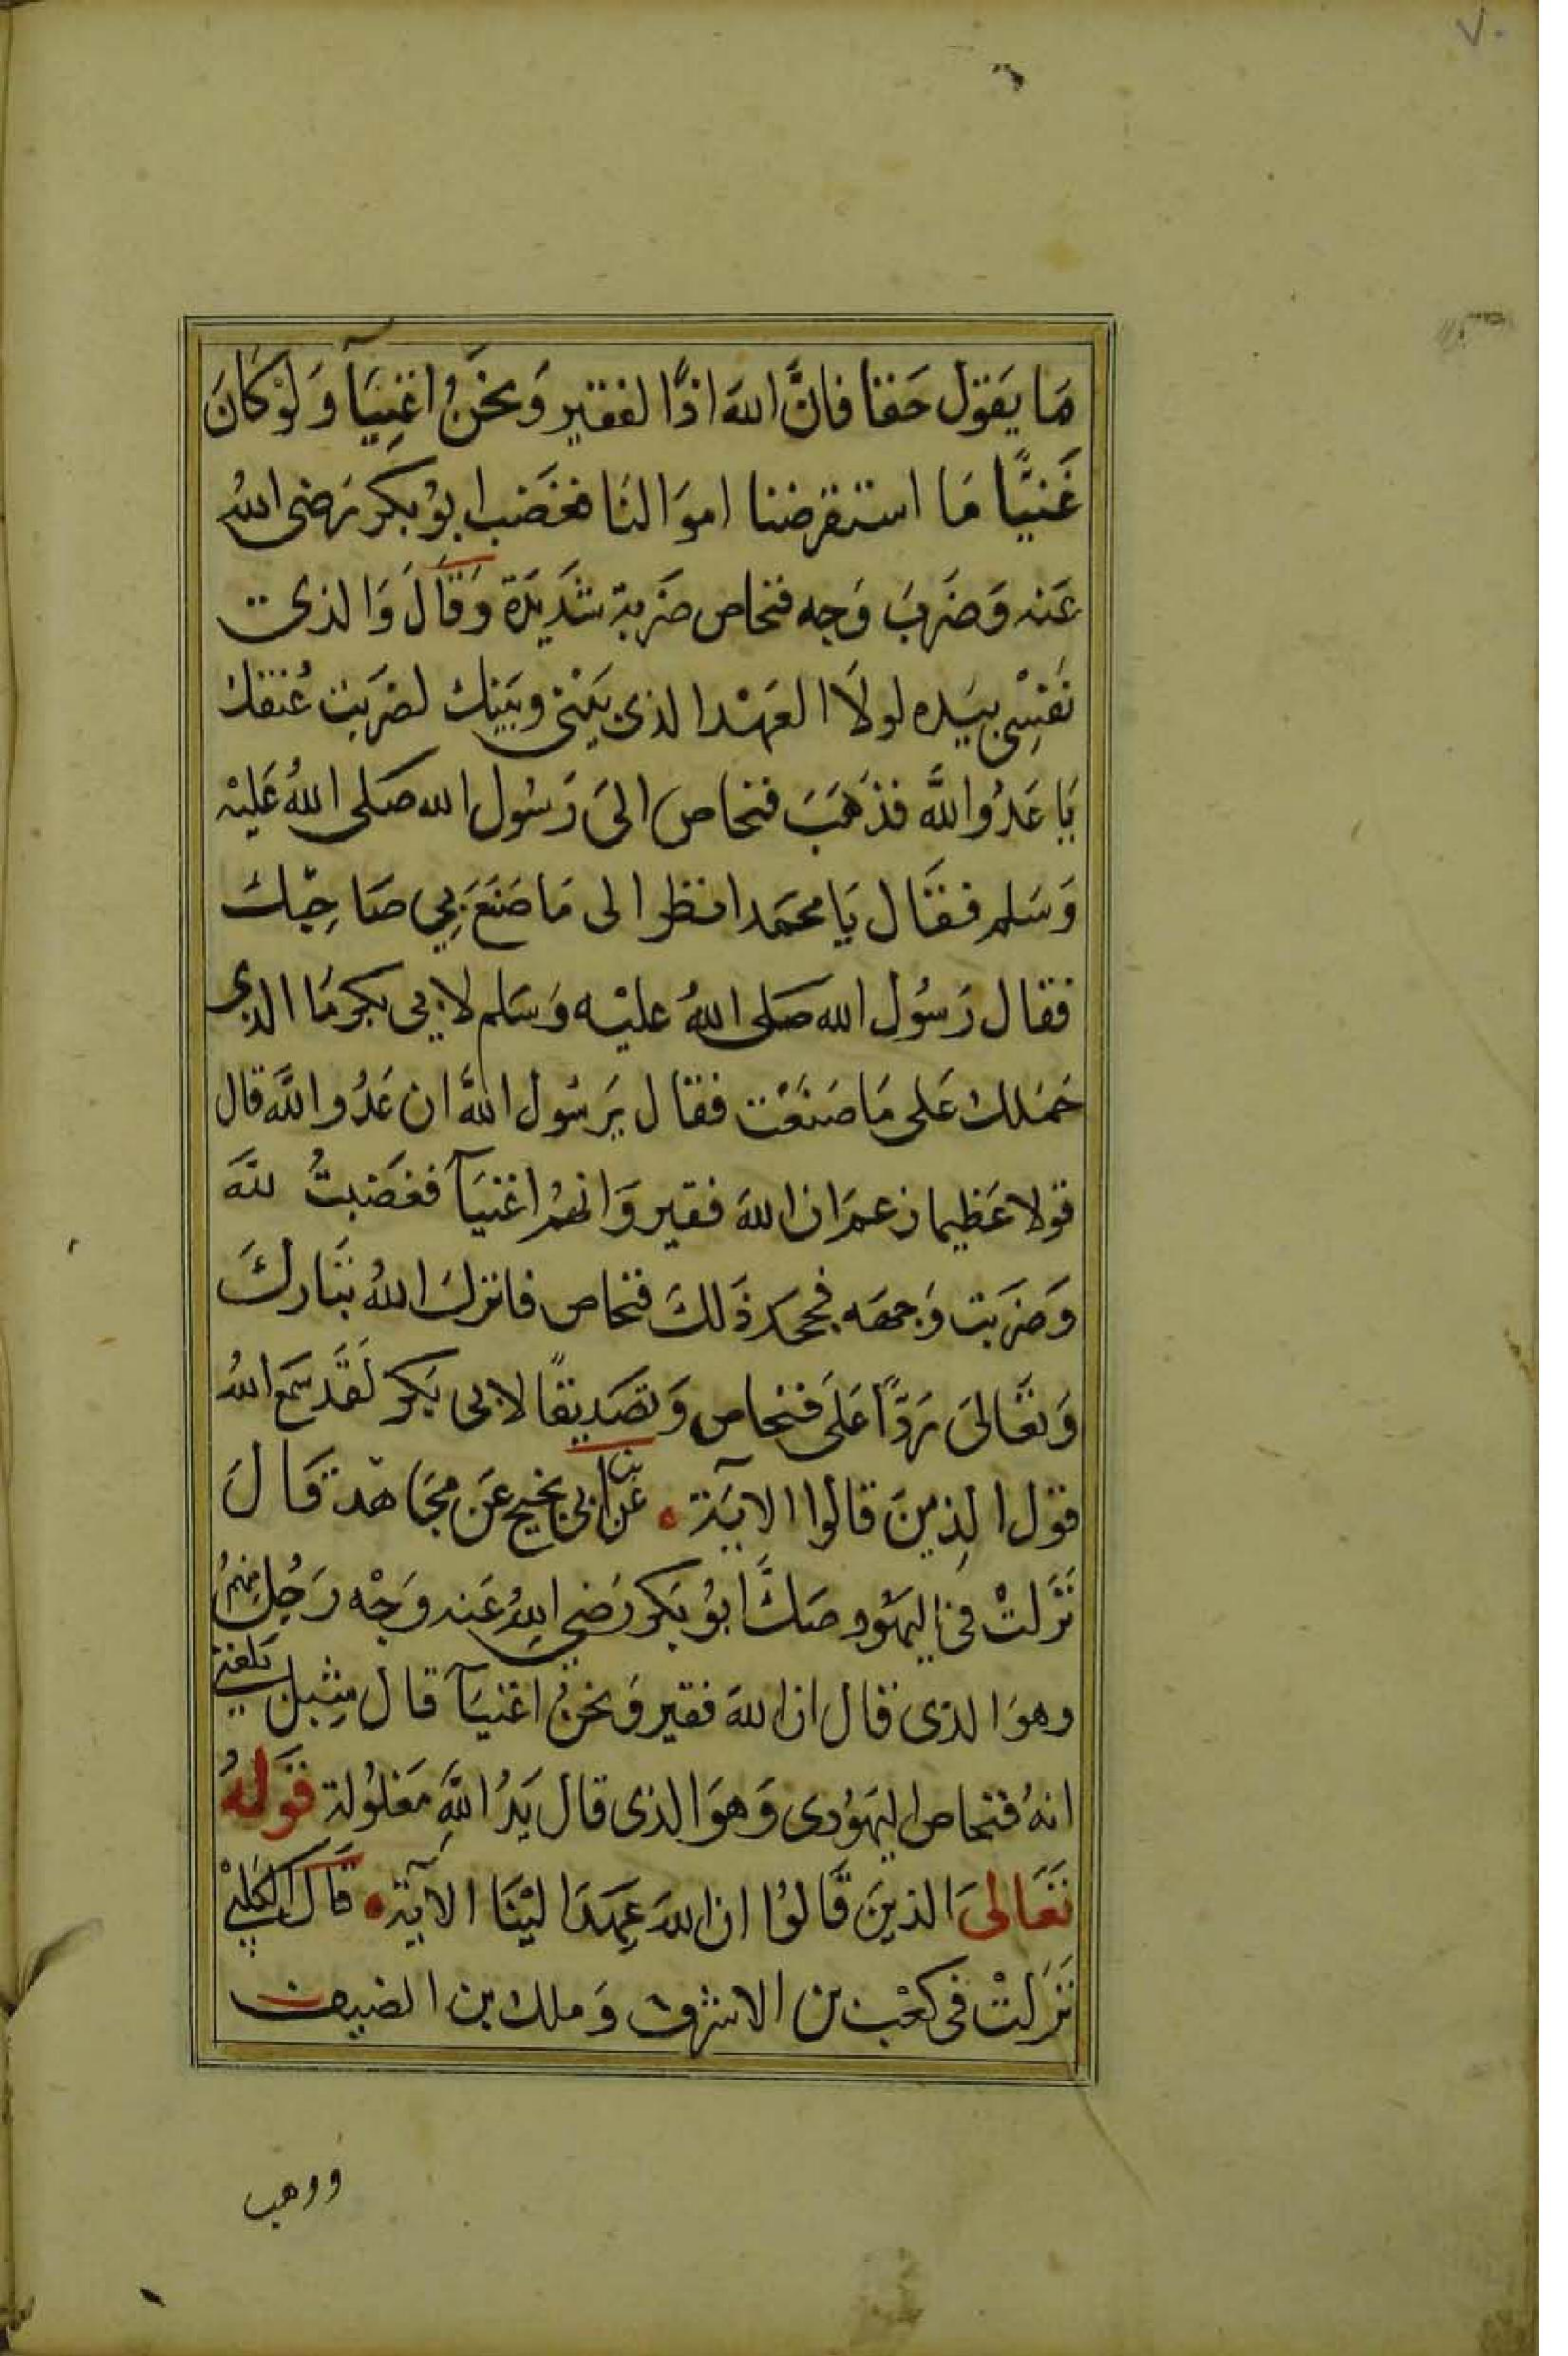 ٧٠
مَا يَقول حَقا فانَّ اللهَ اذًا لفقير وَنحْنُ اغنِيَآ وَلوْ كانَ
غَنيًّا مَا استقرضنا اموَالنَا فغَضَب ابوُ بكر رَضى اللهُ
عَنه وَضرَبَ وَجه فنحاص ضَربة شَديدَة وَقَالَ وَالذى
نَفسِْى بيَده لولاَ العَهْد الذى بَيْنى وبَيَنك لضرَبت عُنقك
يَا عَدُو اللَّه فذهَبَ فنحاص الىَ رَسُول الله صَلى اللهُ عَليْه
وَسَلم فقَال يَا محمَد انظر الى مَا صَنَعَ بِي صَاحِبك
فقال رَسُول الله صَلى اللهُ عليْه وَسَلم لابي بكر مَا الذى
حَمَلك عَلى مَا صَنَعْت فقال يَرسُول اللَّه ان عَدُو اللَّه قال
قولا عَظيما زعمَ ان اللهَ فقير وَانهُم اغنيَآ فغضَبتُ للهَ
وَضرَبت وَجهَه فجحدَ ذَلكَ فنحاص فانزلَ اللهُ تبَاركَ
وَتعَالىَ رَدًّا عَلىَ فنحاص وَتصَديقًا لابى بَكر لقَد سَمع اللهُ
قول الذِينَ قالوا الايَة ۰ عَن ابن ابى نجيح عَن مجَاهد قَالَ
نَزَلتْ فى اليهَود صَكَّ ابوُ بَكر رَضي اللهُ عَنه وَجْه رَجُلِ منهُم
وهوَ الذى قال ان اللهَ فقير وَنحنُ اغنيَآ قال شِبل بَلغَني
انهُ فنحاص اليهَوُدى وَهوَ الذى قال يَدُ اللَّهِ مَغلوُلة قَولهُ
تعَالىَ الذينَ قَالوُا ان اللهَ عَهَدَ اليْنَا الآية ۰ قَال الكَلبْي
نَزَلتْ فى كعْب بن الاشرف وَملك بن الضيف
ووهب